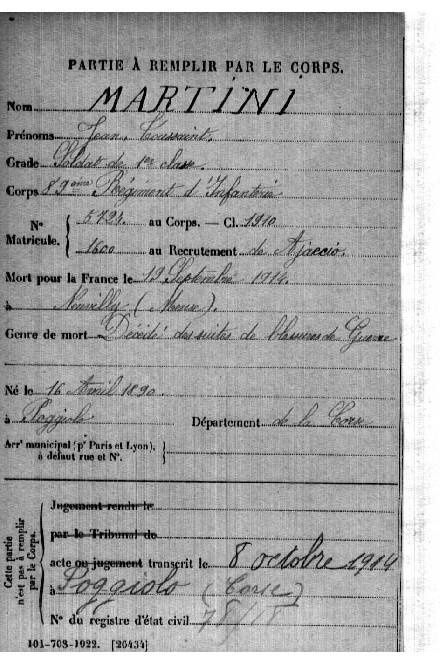 PARTIE À REMPLIR PAR LE CORPS.
Nom MARTINI
Prénoms Jean Toussaint.
Grade Soldat de 1re classe.
Corps 89ème Régiment d'Infanterie
N° Matricule. { 5724. au Corps. — Cl. 1910
1600 au Recrutement de Ajaccio.
Mort pour la France le 19 Septembre 1914.
à Neuvilly (Meuse).
Genre de mort Décédé des suites de blessures de Guerre
Né le 16 Avril 1890.
à Poggiolo Département de la Corse
Arrt municipal (pr Paris et Lyon), à défaut rue et N°. {
Cette partie n'est pas à remplir par le Corps.
Jugement rendu le
par le Tribunal de
acte ou jugement transcrit le 8 octobre 1914
à Poggiolo (Corse)
N° du registre d'état civil 78/18
101-708-1922. [26434]